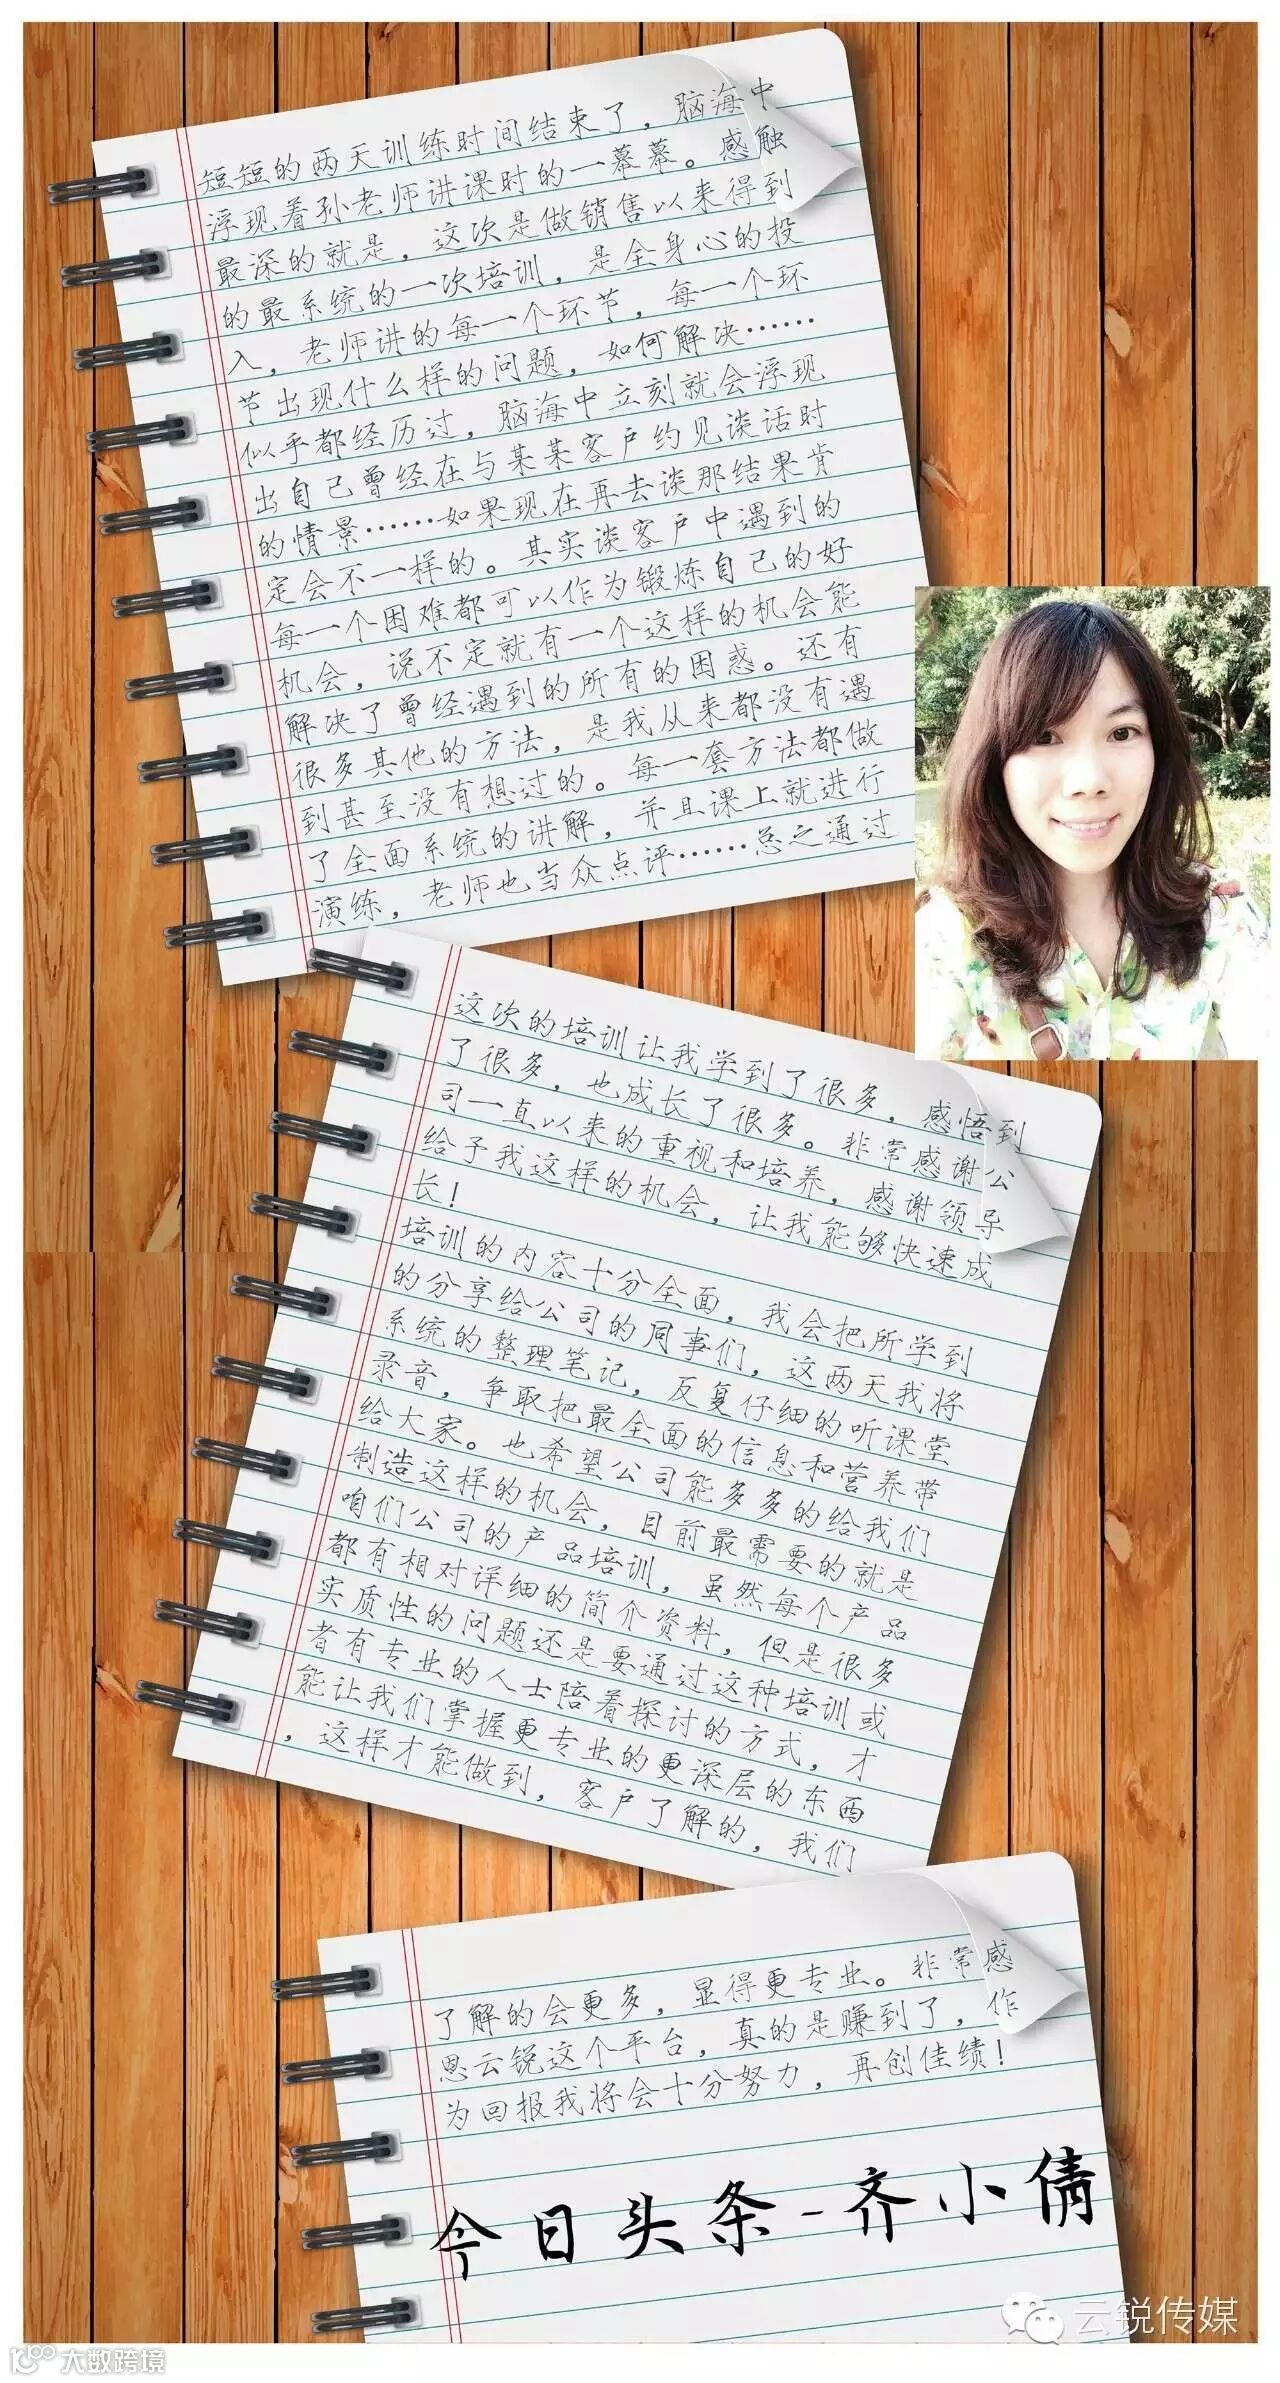 短短的两天训练时间结束了，脑海中
浮现着孙老师讲课时的一幕幕。感触
最深的就是，这次是做销售以来得到
的最系统的一次培训，是全身心的投
入，老师讲的每一个环节，每一个环
节出现什么样的问题，如何解决……
似乎都经历过，脑海中立刻就会浮现
出自己曾经在与某某客户约见谈话时
的情景……如果现在再去谈那结果肯
定会不一样的。其实谈客户中遇到的
每一个困难都可以作为锻炼自己的好
机会，说不定就有一个这样的机会能
解决了曾经遇到的所有的困惑。还有
很多其他的方法，是我从来都没有遇
到甚至没有想过的。每一套方法都做
了全面系统的讲解，并且课上就进行
演练，老师也当众点评……总之通过
这次的培训让我学到了很多，感悟到
了很多，也成长了很多。非常感谢公
司一直以来的重视和培养，感谢领导
给予我这样的机会，让我能够快速成
长！
培训的内容十分全面，我会把所学到
的分享给公司的同事们，这两天我将
系统的整理笔记，反复仔细的听课堂
录音，争取把最全面的信息和营养带
给大家。也希望公司能多多的给我们
制造这样的机会，目前最需要的就是
咱们公司的产品培训，虽然每个产品
都有相对详细的简介资料，但是很多
实质性的问题还是要通过这种培训或
者有专业的人士陪着探讨的方式，才
能让我们掌握更专业的更深层的东西
，这样才能做到，客户了解的，我们
了解的会更多，显得更专业。非常感
恩云锐这个平台，真的是赚到了，作
为回报我将会十分努力，再创佳绩！
今日头条-齐小倩
云锐传媒
大数跨境